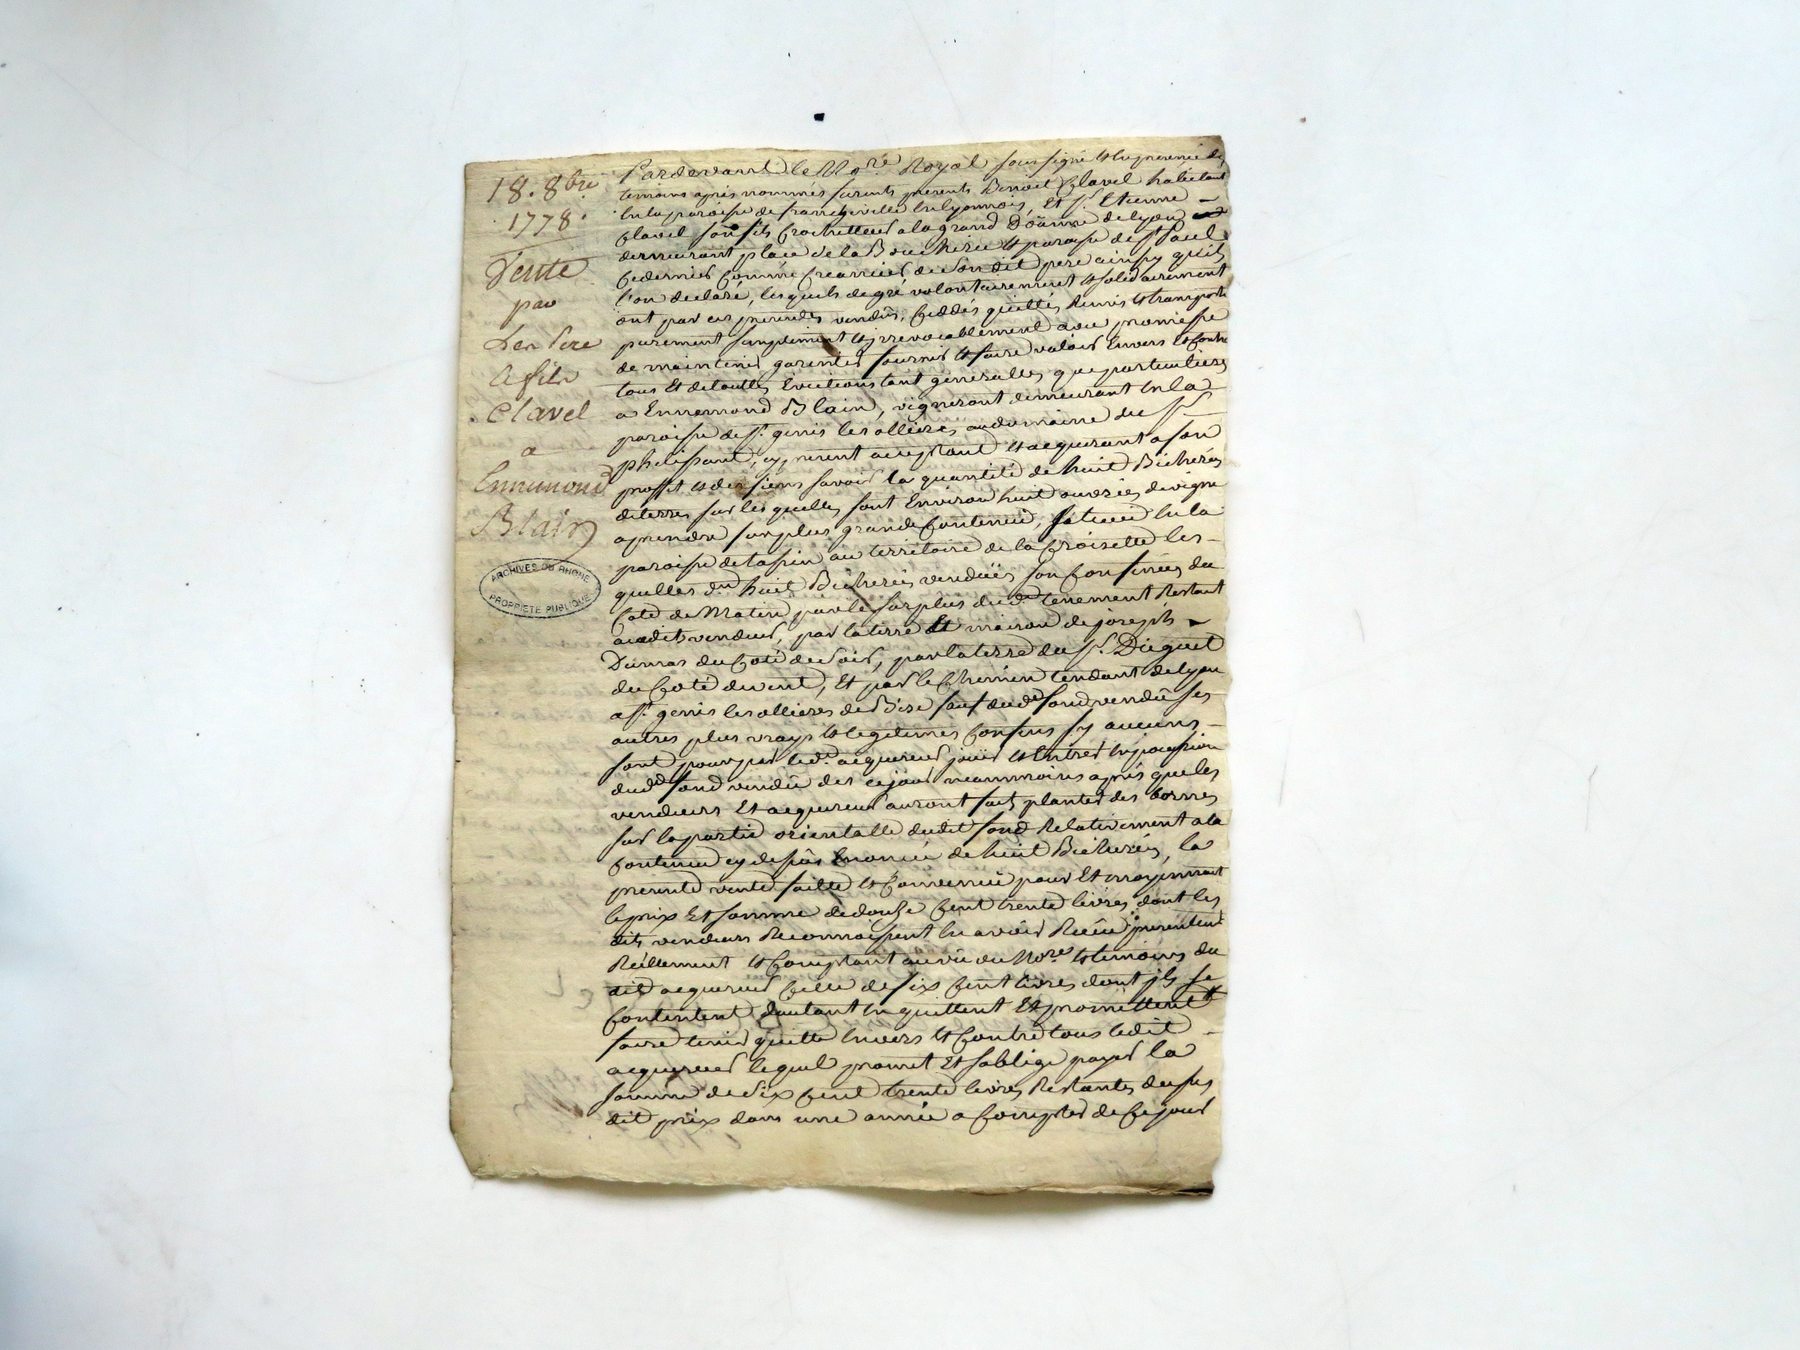 18. 8bre
1778.
Vente
par
Les Pere
& fils
Clavel
a
Ennemond
Blain
ARCHIVES DU RHONE
PROPRIETE PUBLIQUE
Pardevant le Nore. Royal sousigné et en presence des
temoins apres nommés furents presents Benoit Clavel habitant
en la paroisse de francheville en lyonnois, Et Sr. Etienne
Clavel son fils Crochetteur a la grand Döanne de lyon
demeurant place de la Boucherie et paroisse de st Paul
Ce dernier Comme Creancier de Son dit pere ainsy quils
l'on declaré, lesquels de gré volontairement et solidairement
ont par ces presentes vendus, Ceddés quittés, Remis et transportés
purement simplement et irrevocablement avec promesse
de maintenir garentir fournir et faire valoir Envers et Contre
tous Et de touttes Evictions tant generalles que particulieres
a Ennemond Blain, vigneront demeurant en la
paroisse de st. genis les ollieres au domaine du Sr
phelipant, cy present acceptant et acquerant a son
proffit et des siens savoir la quantité de huit Bicherées
de terres sur lesquelles sont Environ huit ouvrées de vigne
a prendre sur plus grande Contenue, Situee en la
paroisse de tassin au territoire de la Croisette les
quelles dtes huit Bicherées vendües son Confinées du
Coté de Matin par le surplus du dt tenement Restant
audits vendeur, par la terre Et maison de joseph
Dumas du Coté de Soir, par la terre du Sr. Dieguet
du Coté du vent, Et par le Chemin tendant de lyon
a st. genis les ollieres de Bise sauf du dt fond vendu ses
autres plus vrays et legitimes Confins sy aucuns
sont pour par ledt. acquereur jouir et Entrer en possession
dudt fond vendu des ce jour neammoins apres que les
vendeurs Et acquereur auront fait planter des bornes
sur la partie orientalle dudit fond Relativement a la
Contenue cy dessus Enoncée de huit Bicherées, la
presente vente faitte et Convenue pour Et moyennant
le prix Et somme de douze Cent trente livres dont les
dits vendeurs Reconnoissent en avoir Reçu presentement
Réellement et Comptant au vü du Nore et temoins du
dit acquereur Celle de six Cent livres dont ils se
Contentent d'autant en quittent Et promettent
faire tenir quitte Envers et Contre tous ledit
acquereur lequel promet Et soblige payer la
somme de Six Cent trente livres Restantes du sus
dit prix dans une année a Compter de Ce jour